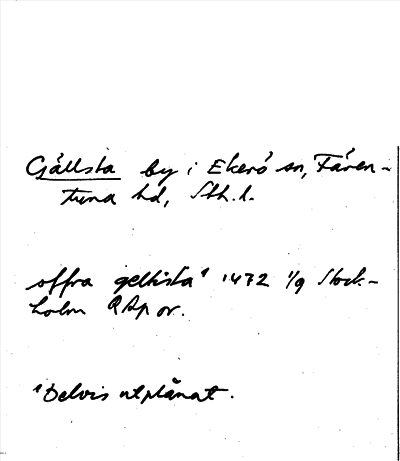 Gällsta by i Ekerö sn, Fären-
tuna hd, Sth.l.
offra gelhista¹ 1472 1/9 Stock-
holm RAp or.
¹Delvis utplånat.